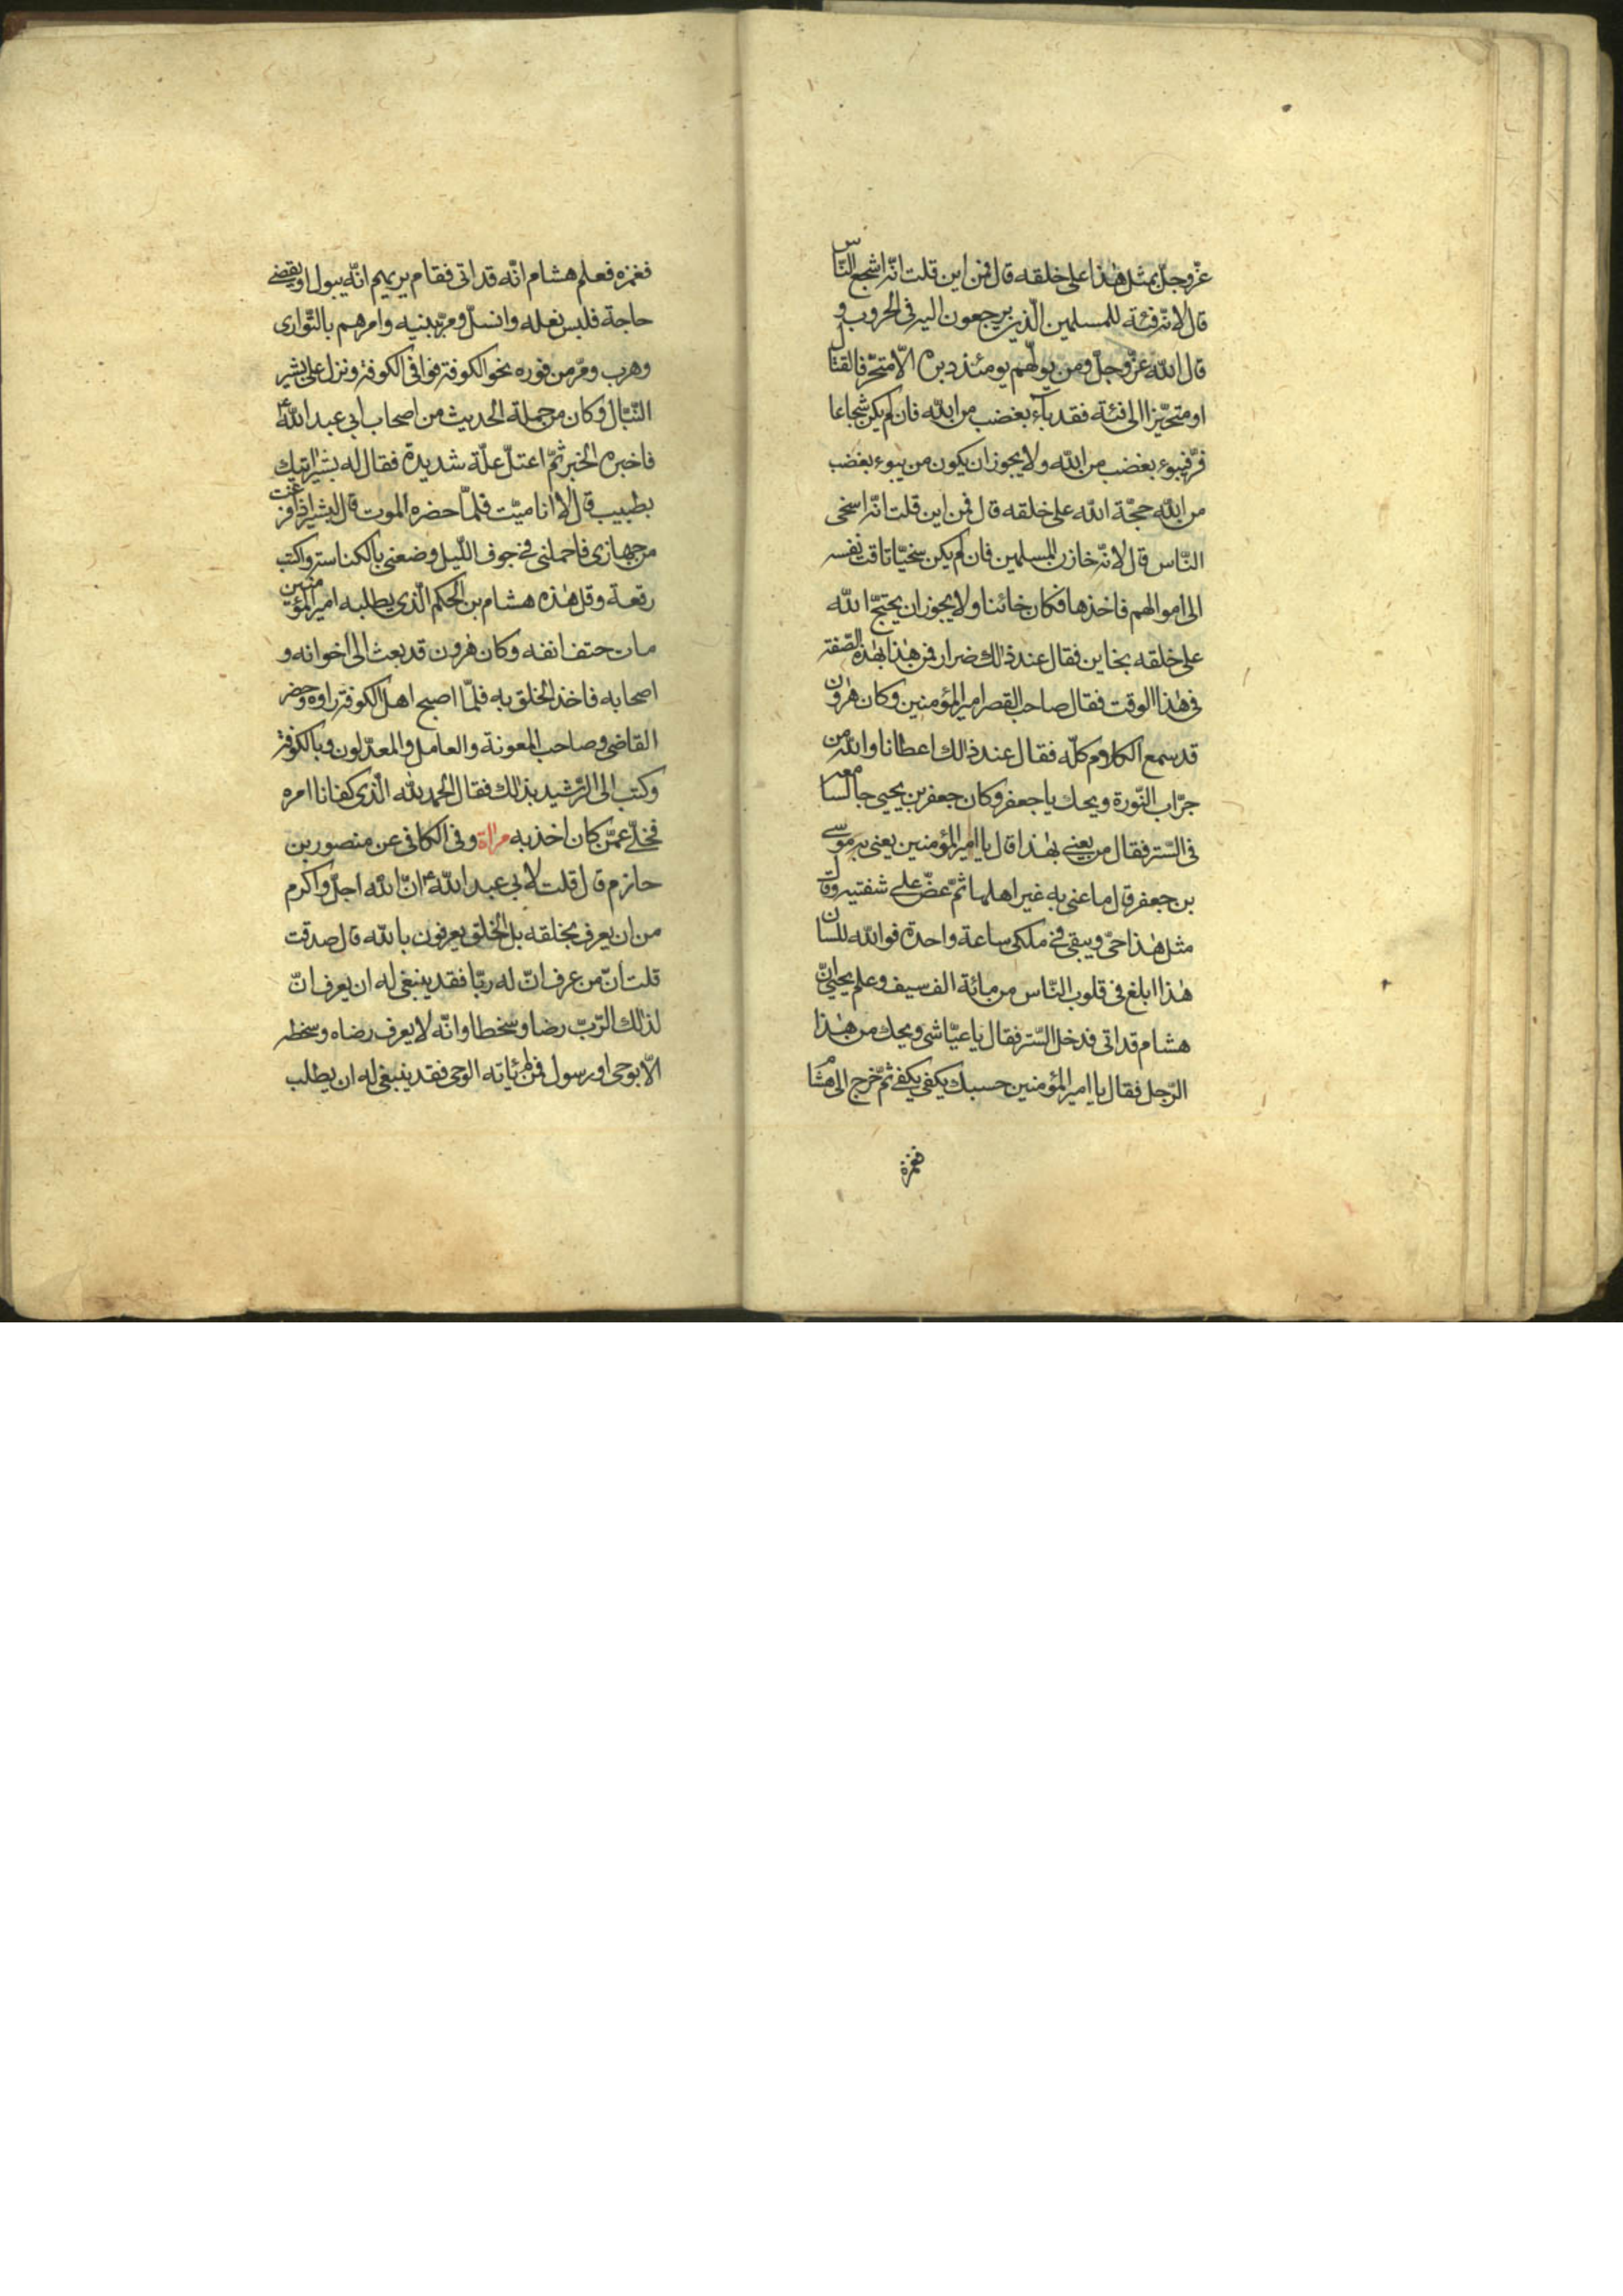 عزّ وجلّ بمثل هٰذا على خلقه قال فمن اين قلت انّه اشجع النّاس
قال لانّه فئة للمسلمين الّذين يرجعون اليه فى الحروب و
قال اللّه عزّ وجلّ ومن يولّهم يومئذ دبره الّا متحرّفا لقتال
او متحيّزا الى فئة فقد بآء بغضب من اللّه فان لم يكن شجاعا
فرّ فيبوء بغضب من اللّه ولا يجوز ان يكون من يبوء بغضب
من اللّه حجّة اللّه على خلقه قال فمن اين قلت انّه اسخى
النّاس قال لانّه خازن المسلمين فان لم يكن سخيّا تاقت نفسه
الى اموالهم فاخذها فكان خائنا ولا يجوز ان يحتجّ اللّه
على خلقه بخاين فقال عند ذٰلك ضرار فمن هٰذا بهٰذه الصّفة
فى هٰذا الوقت فقال صاحب القصر امير المؤمنين وكان هٰرون
قد سمع الكلام كلّه فقال عند ذٰلك اعطانا واللّه من
جرّاب النّورة ويحك يا جعفر وكان جعفر بن يحيى جالسا معه
فى السّتر فقال من يعنى بهٰذا قال يا امير المؤمنين يعنى به موسى
بن جعفر قال ما عنى به غير اهلها ثمّ عضّ على شفتيه وقال
مثل هٰذا حىّ ويبقى فى ملكى ساعة واحدة فواللّه للسان
هٰذا ابلغ فى قلوب النّاس من مائة الف سيف وعلم يحيى انّ
هشام قد اتى فدخل السّتر فقال يا عيّاشى ويحك من هٰذا
الرّجل فقال يا امير المؤمنين حسبك يكفى يكفى ثمّ خرج الى هشام
فغمزه
فغمزه فعلم هشام انّه قد اتى فقام يريهم انّه يبول او يقضى
حاجة فلبس نعله وانسلّ ومرّ ببنيه وامرهم بالتّوارى
وهرب ومرّ من فوره نحو الكوفة فوافى الكوفة ونزل على بشير
النّبّال وكان من حملة الحديث من اصحاب ابى عبد اللّه ع
فاخبره الخبر ثمّ اعتلّ علّة شديدة فقال له بشير اتيك
بطبيب قال لا انا ميّت فلمّا حضره الموت قال لبشير اذا فرغت
من جهازى فاحملنى فى جوف اللّيل وضعنى بالكناسة واكتب
رقعة وقل هٰذه هشام بن الحكم الّذى يطلبه امير المؤمنين
مات حتف انفه وكان هٰرون قد بعث الى اخوانه و
اصحابه فاخذ الخلق به فلمّا اصبح اهل الكوفة راوه وحضر
القاضى وصاحب المعونة والعامل والمعدّلون وبالكوفة
وكتب الى الرّشيد بذٰلك فقال الحمد للّه الّذى كفانا امره
فخلّى عمّن كان اخذ به مراٰة وفى الكافى عن منصور بن
حازم قال قلت لابى عبد اللّه ع انّ اللّه اجلّ واكرم
من ان يعرف بخلقه بل الخلق يعرفون باللّه قال صدقت
قلت انّ من عرف انّ له ربّا فقد ينبغى له ان يعرف انّ
لذٰلك الرّبّ رضا وسخطا وانّه لا يعرف رضاه وسخطه
الّا بوحى او رسول فمن لم ياته الوحى فقد ينبغى له ان يطلب